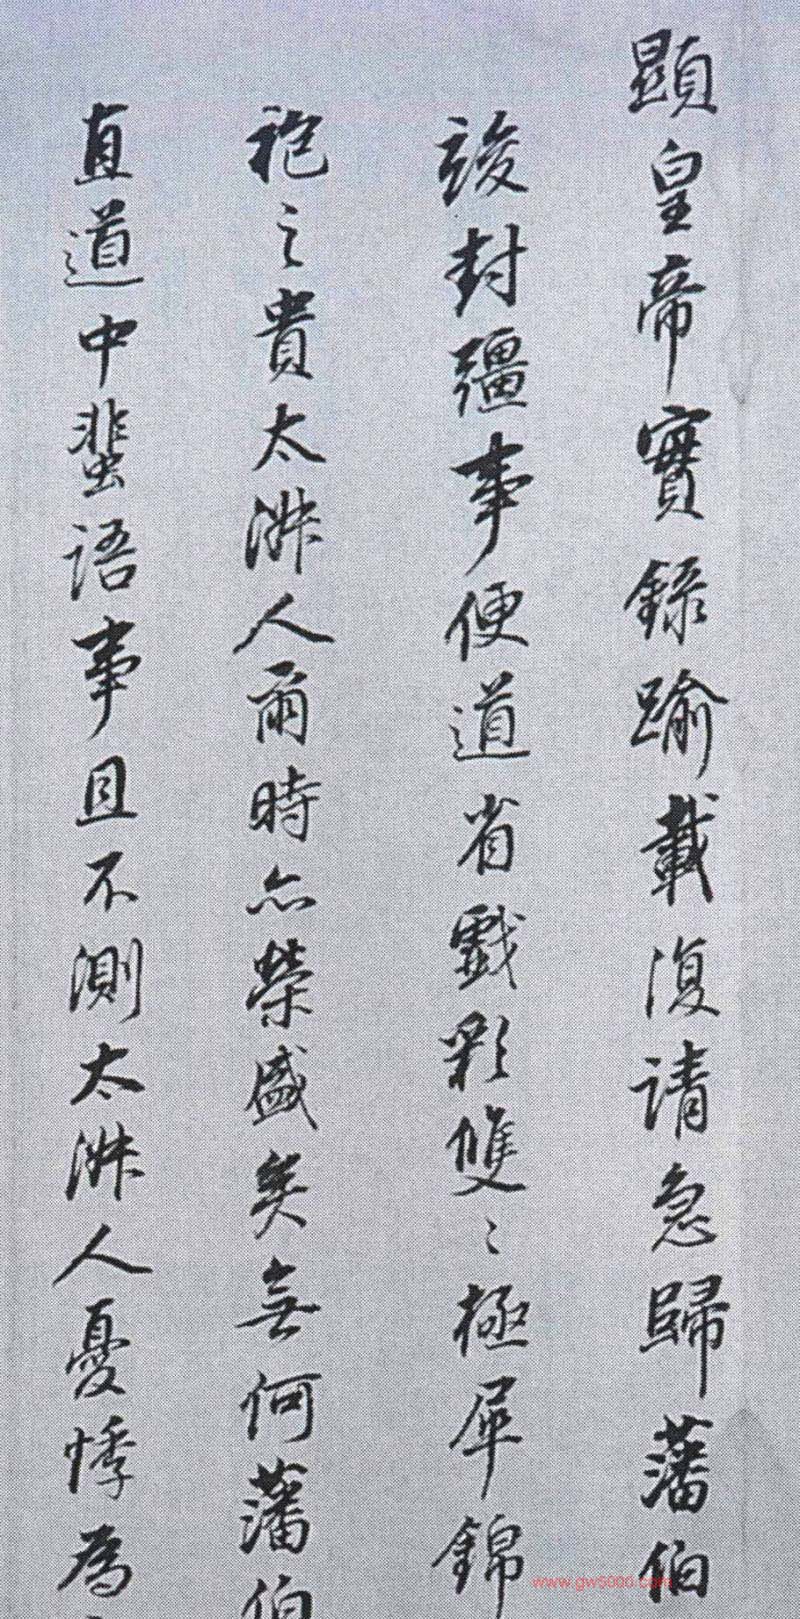 顯皇帝實錄踰載復請急歸藩伯
竣封疆事便道省戲彩雙〻極犀錦
袍之貴太淑人爾時亦榮盛矣無何藩伯
直道中蜚語事且不測太淑人憂悸為
www.gw5000.com